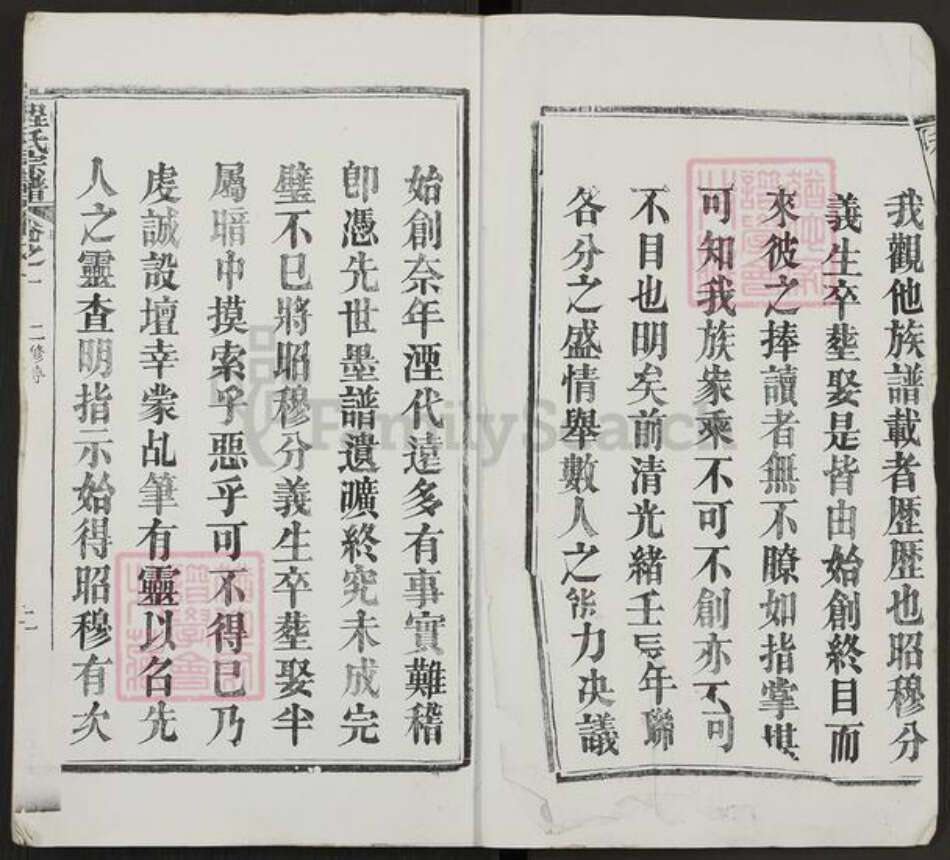 我觀他族譜載者歷歷也昭穆分
義生卒塟娶是皆由始創終目而
來彼之捧讀者無不瞭如指掌其
可知我族家乘不可不創亦不可
不目也明矣前清光緒壬辰年聯
各分之盛情舉數人之能力决議
始創奈年湮代遠多有事實難稽
卽憑先世墨譜遺曠終究未成完
璧不巳將昭穆分義生卒塟娶半
屬暗中摸索乎惡乎可不得巳乃
虔誠設壇幸蒙乩筆有靈以名先
人之靈查明指示始得昭穆有次
程氏宗譜 卷之一 二修序 二
FamilySearch